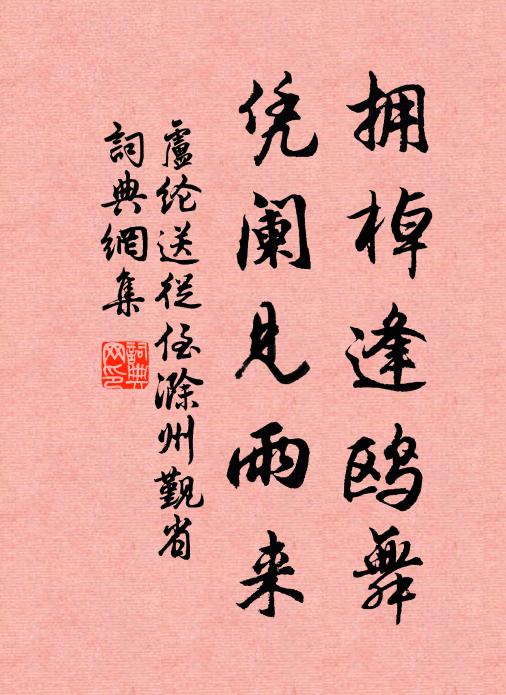 拥棹逢鸥舞
凭阑见雨来
盧纶送從侄滁州觐省
詞典網集
詞典网印